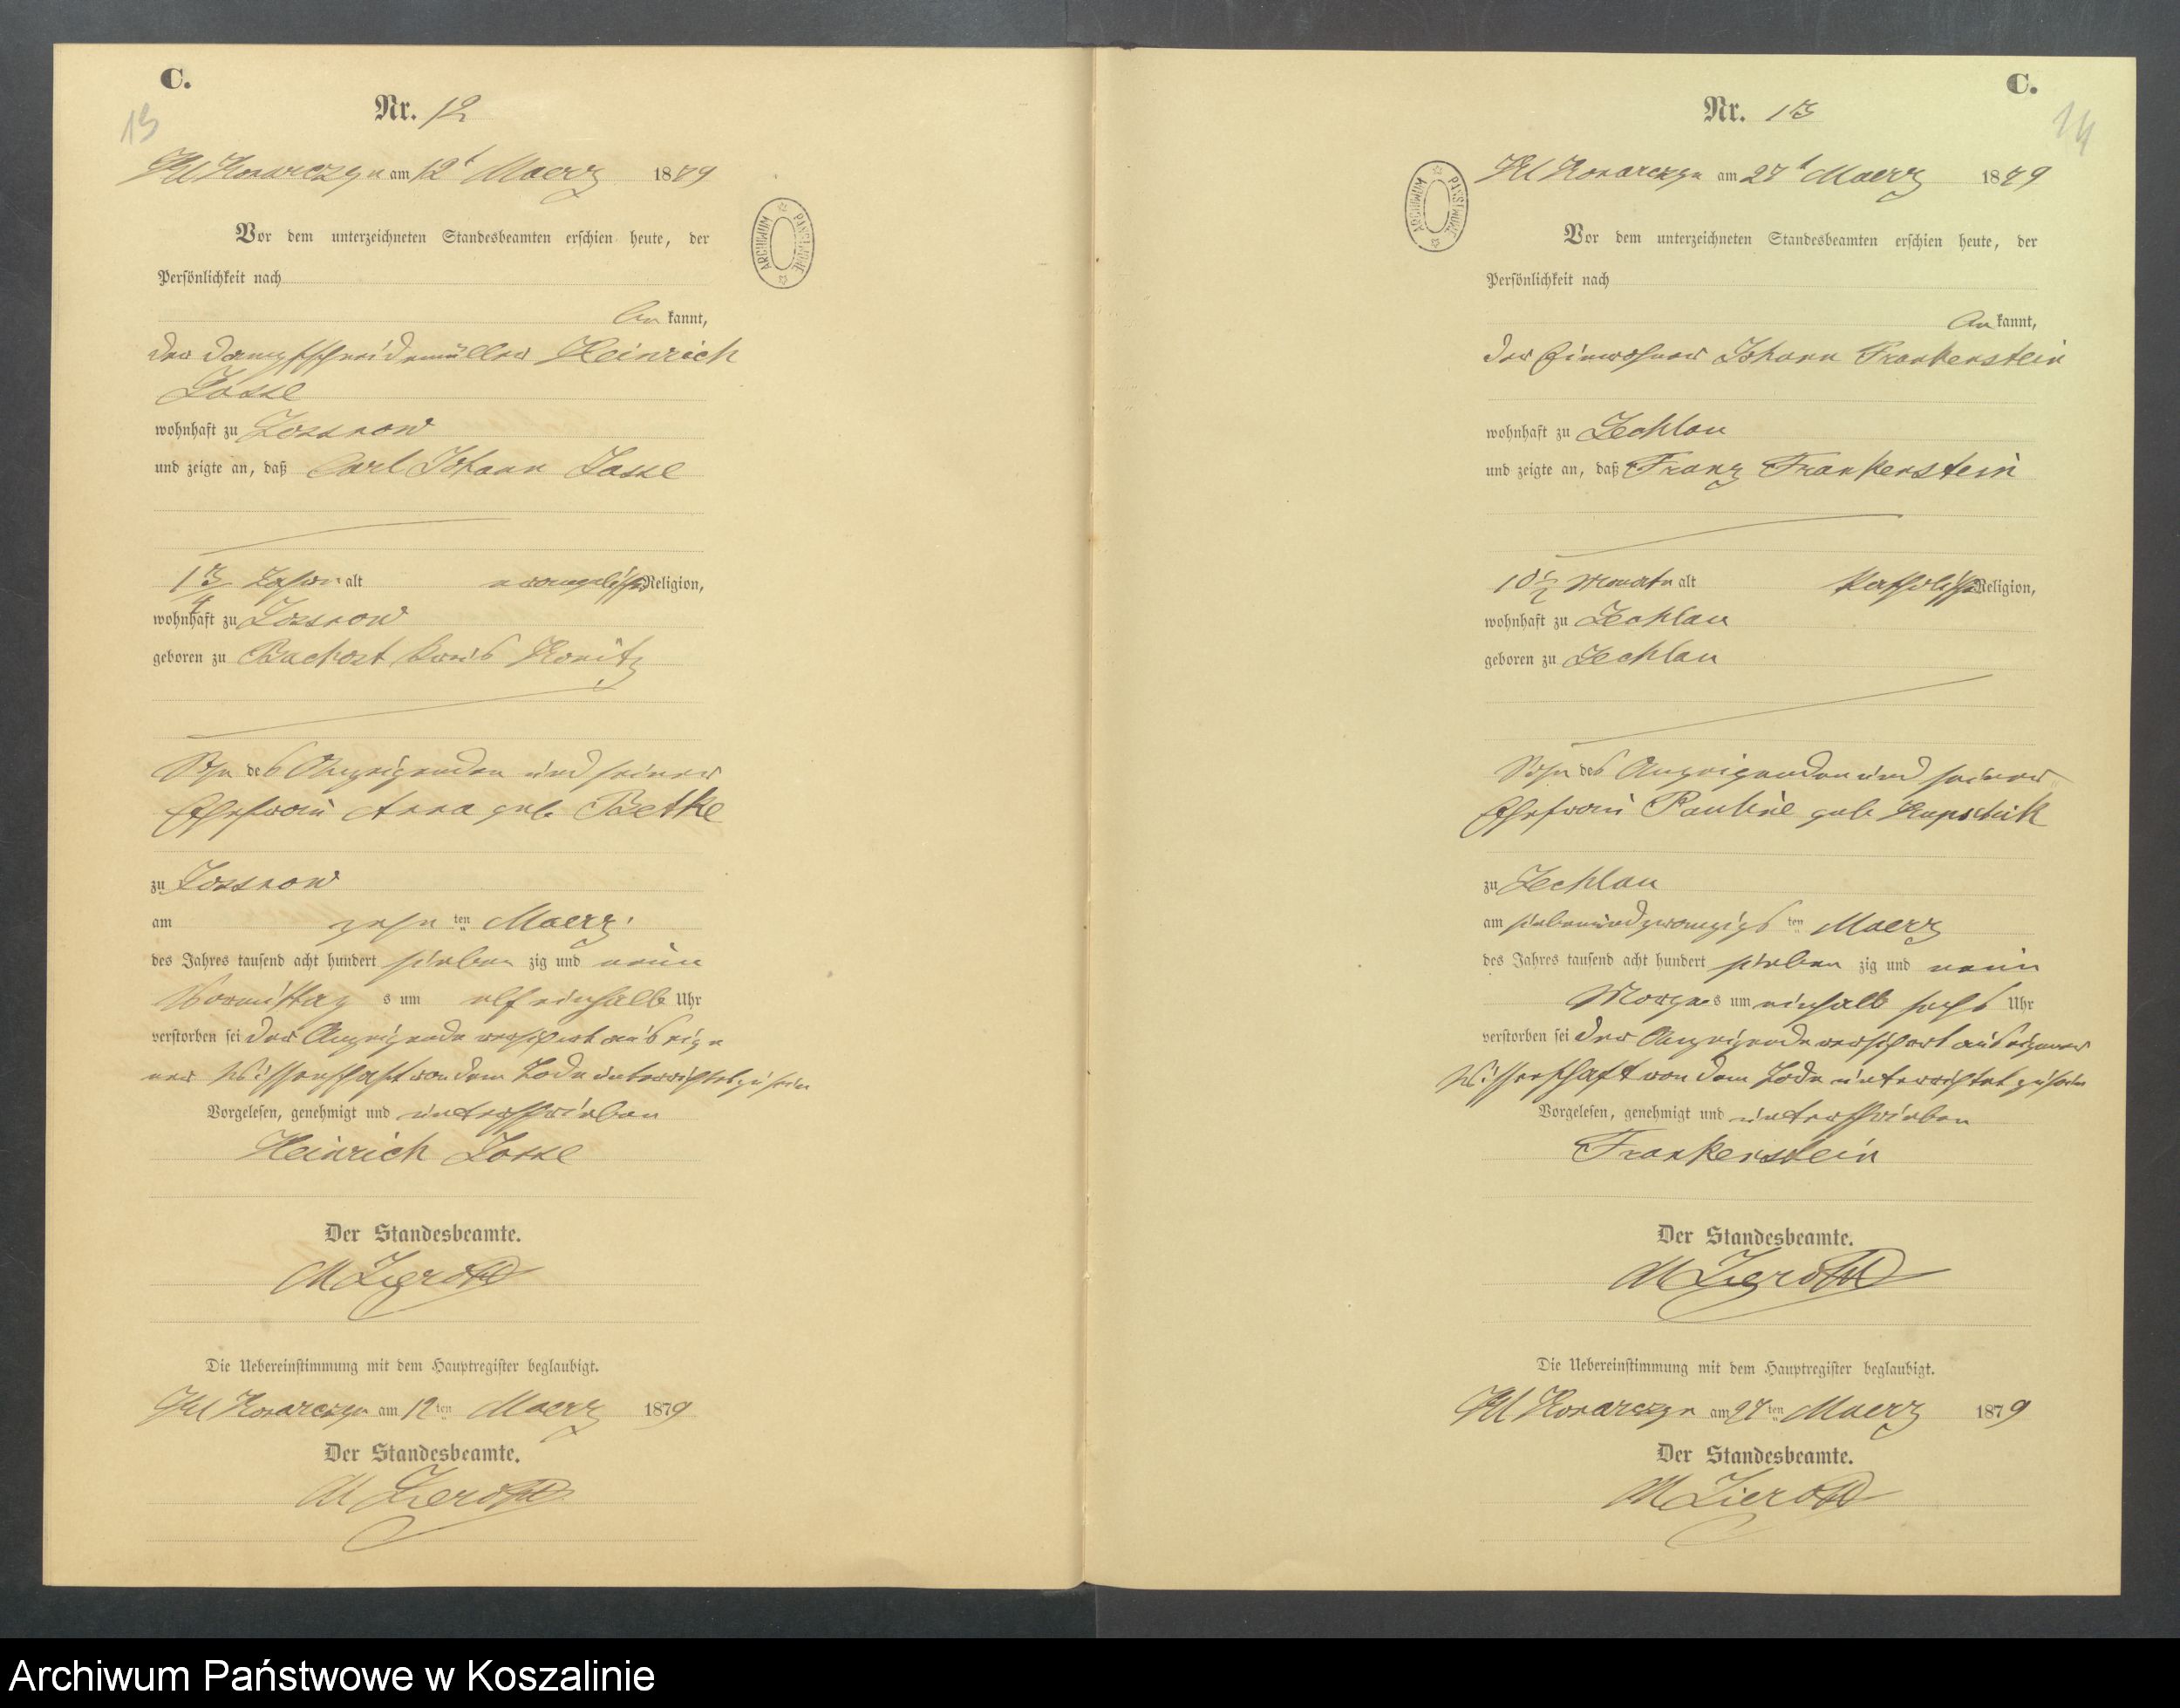 C.
13
Nr. 12
Kl Konarczyn am 12t Maerz 1879
Vor dem unterzeichneten Standesbeamten erschien heute, der
Persönlichkeit nach
be kannt,
der Dampfschneidemüller Heinrich
wohnhaft zu Lossnow
und zeigte an, daß Carl Johann
1 3/4 Jahre alt evangelischer Religion,
wohnhaft zu Lossnow
geboren zu Bachorst Kreis Konitz
Sohn des Anzeigenden und seiner
Ehefrau Anna geb. Betke
zu Lossnow
am zehn ten Maerz
des Jahres tausend acht hundert sieben zig und neun
Vormittag s um elf einhalb Uhr
verstorben sei der Anzeigende versichert aus eige
ner Wissenschaft von dem Tode unterrichtet zu sein
Vorgelesen, genehmigt und unterschrieben
Heinrich
Der Standesbeamte.
Die Uebereinstimmung mit dem Hauptregister beglaubigt.
Kl Konarczyn am 12ten Maerz 1879
Der Standesbeamte.
ARCHIWUM PAŃSTWOWE
C.
14
Nr. 13
Kl Konarczyn am 27t Maerz 1879
ARCHIWUM PAŃSTWOWE
Vor dem unterzeichneten Standesbeamten erschien heute, der
Persönlichkeit nach
be kannt,
der Einwohner Johann Frankenstein
wohnhaft zu Zechlau
und zeigte an, daß Franz Frankenstein
Monate alt katholischer Religion,
wohnhaft zu Zechlau
geboren zu Zechlau
Sohn des Anzeigenden und seiner
Ehefrau Pauline geb
zu Zechlau
am siebenundzwanzigs ten Maerz
des Jahres tausend acht hundert sieben zig und neun
Morgens um einhalb sechs Uhr
verstorben sei der Anzeigende versichert aus eigener
Wissenschaft von dem Tode unterrichtet zu sein
Vorgelesen, genehmigt und unterschrieben
Frankenstein
Der Standesbeamte.
Die Uebereinstimmung mit dem Hauptregister beglaubigt.
Kl Konarczyn am 27ten Maerz 1879
Der Standesbeamte.
Archiwum Państwowe w Koszalinie